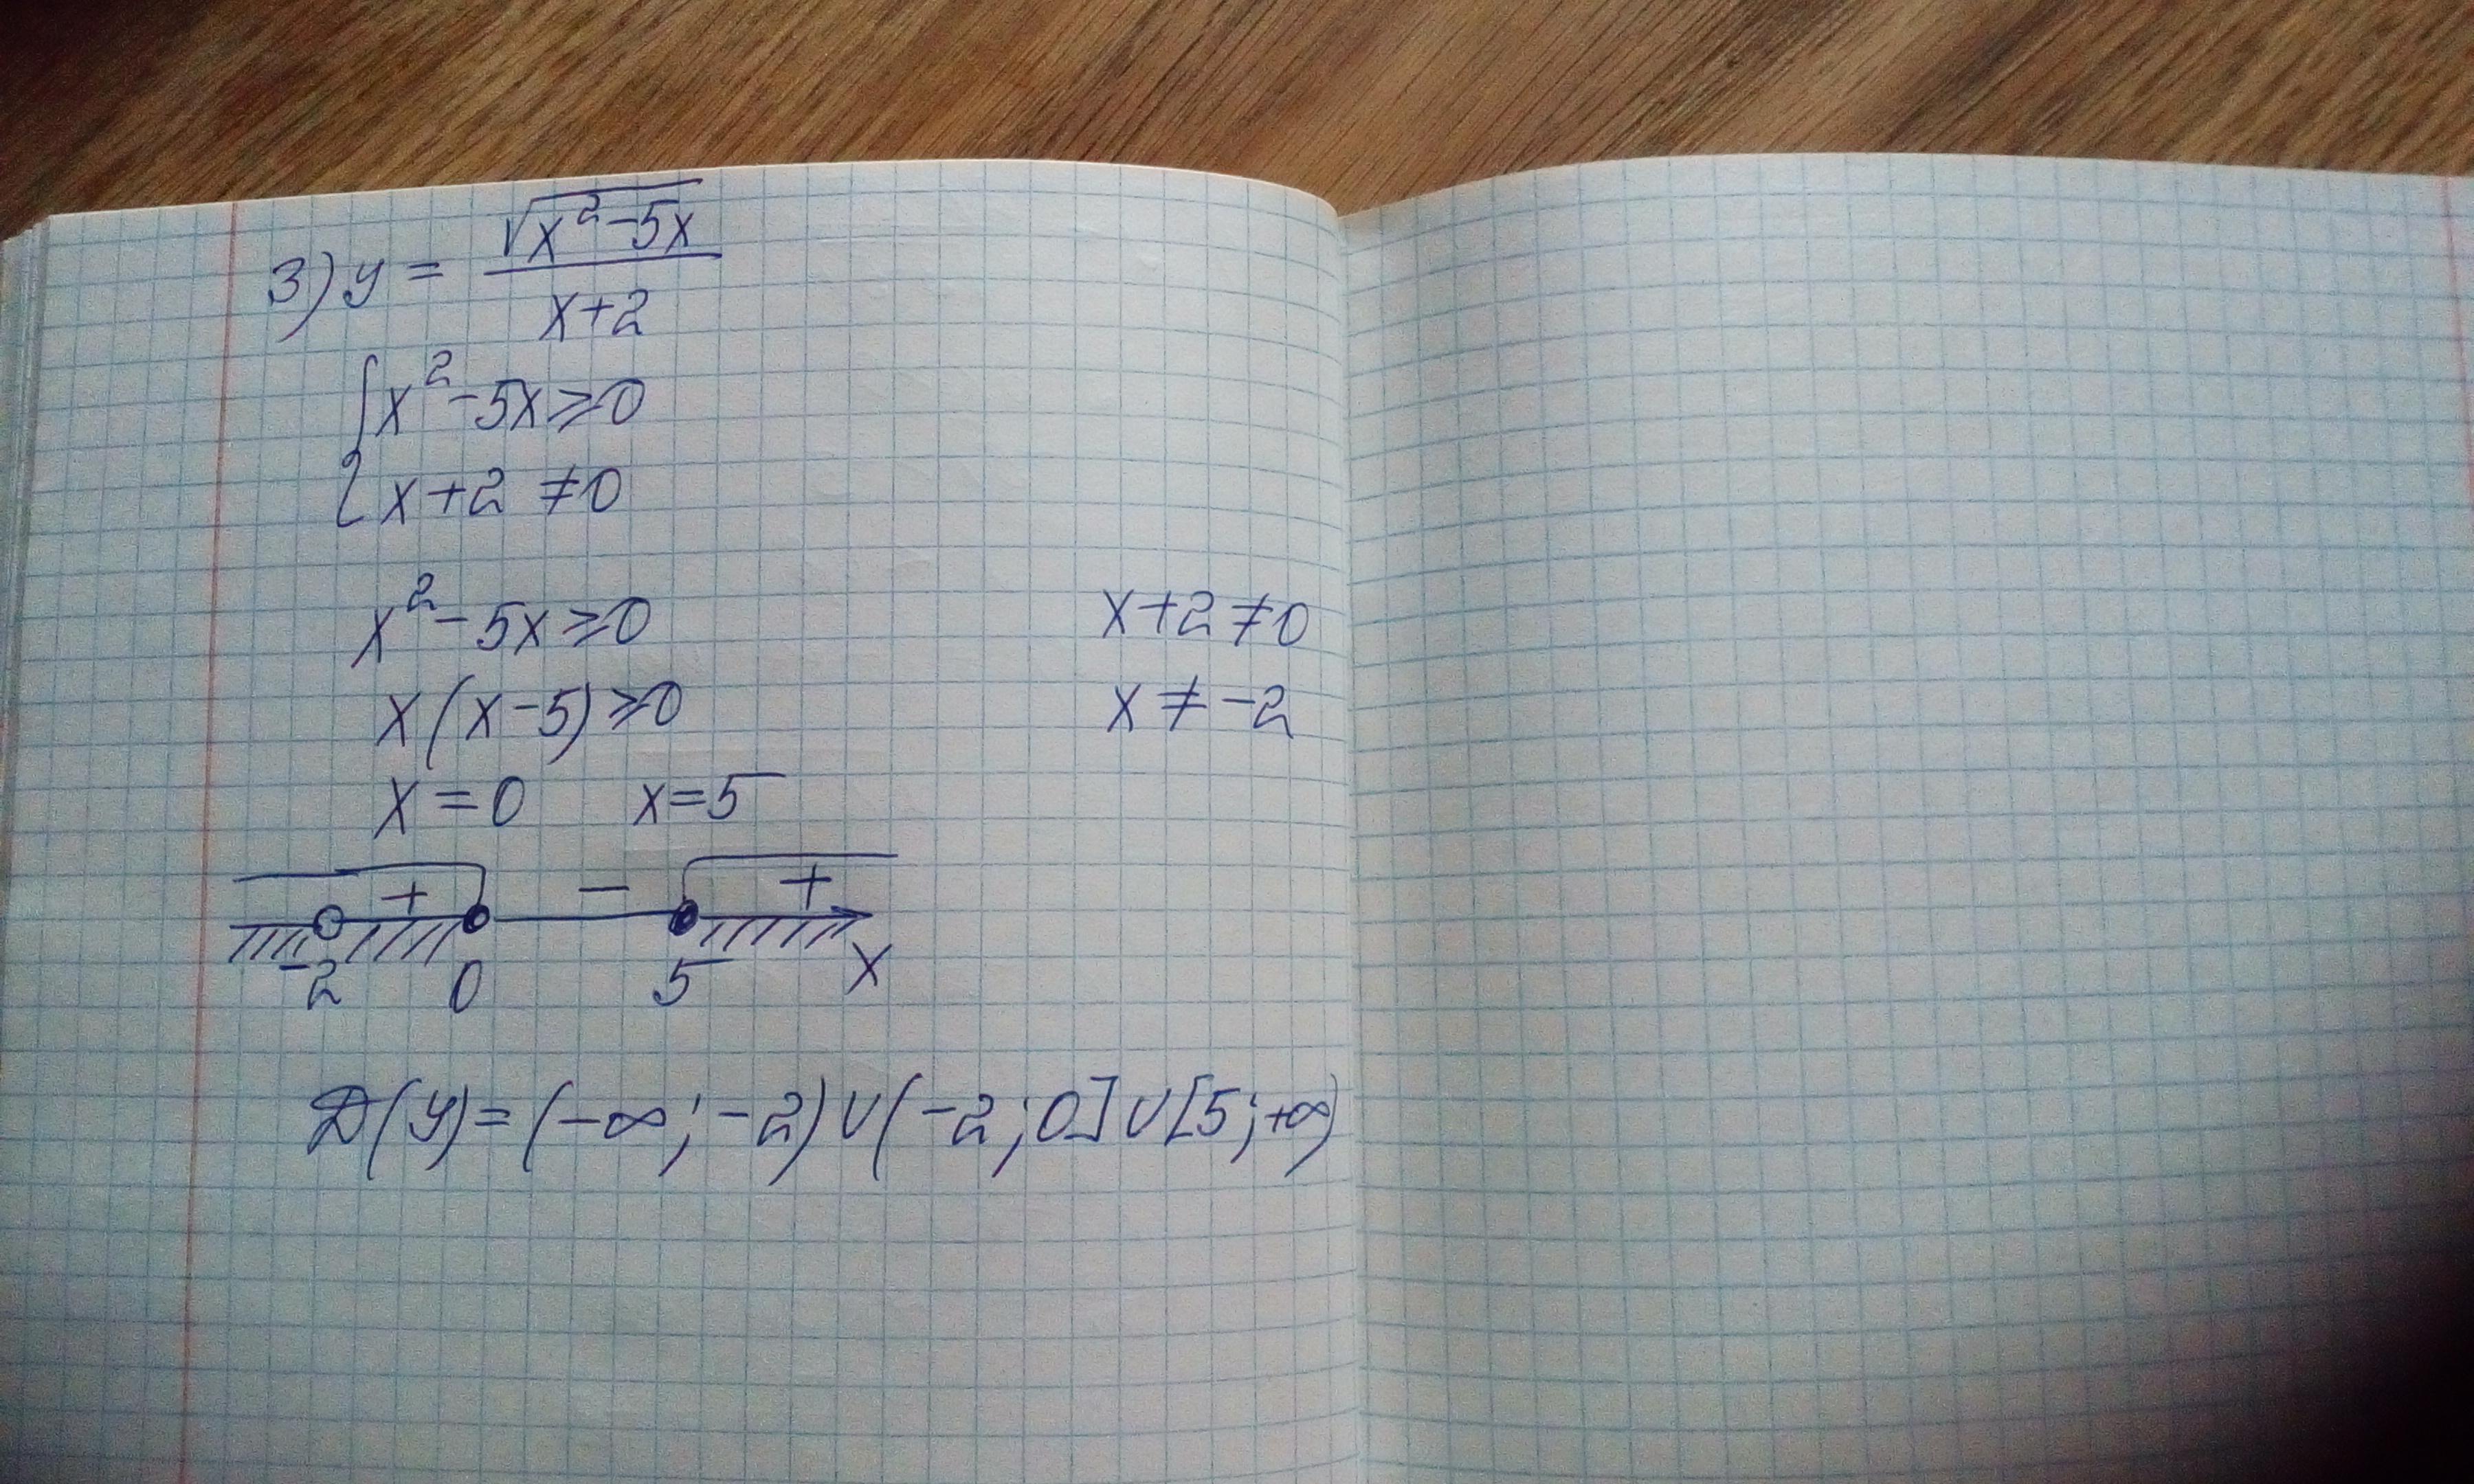 3) y = √(x² - 5x) / (x + 2)
{ x² - 5x ⩾ 0
x + 2 ≠ 0
x² - 5x ⩾ 0 x + 2 ≠ 0
x(x - 5) ⩾ 0 x ≠ -2
x = 0 x = 5
+ − +
-2 0 5 x
D(y) = (-∞; -2) ∪ (-2; 0] ∪ [5; +∞)